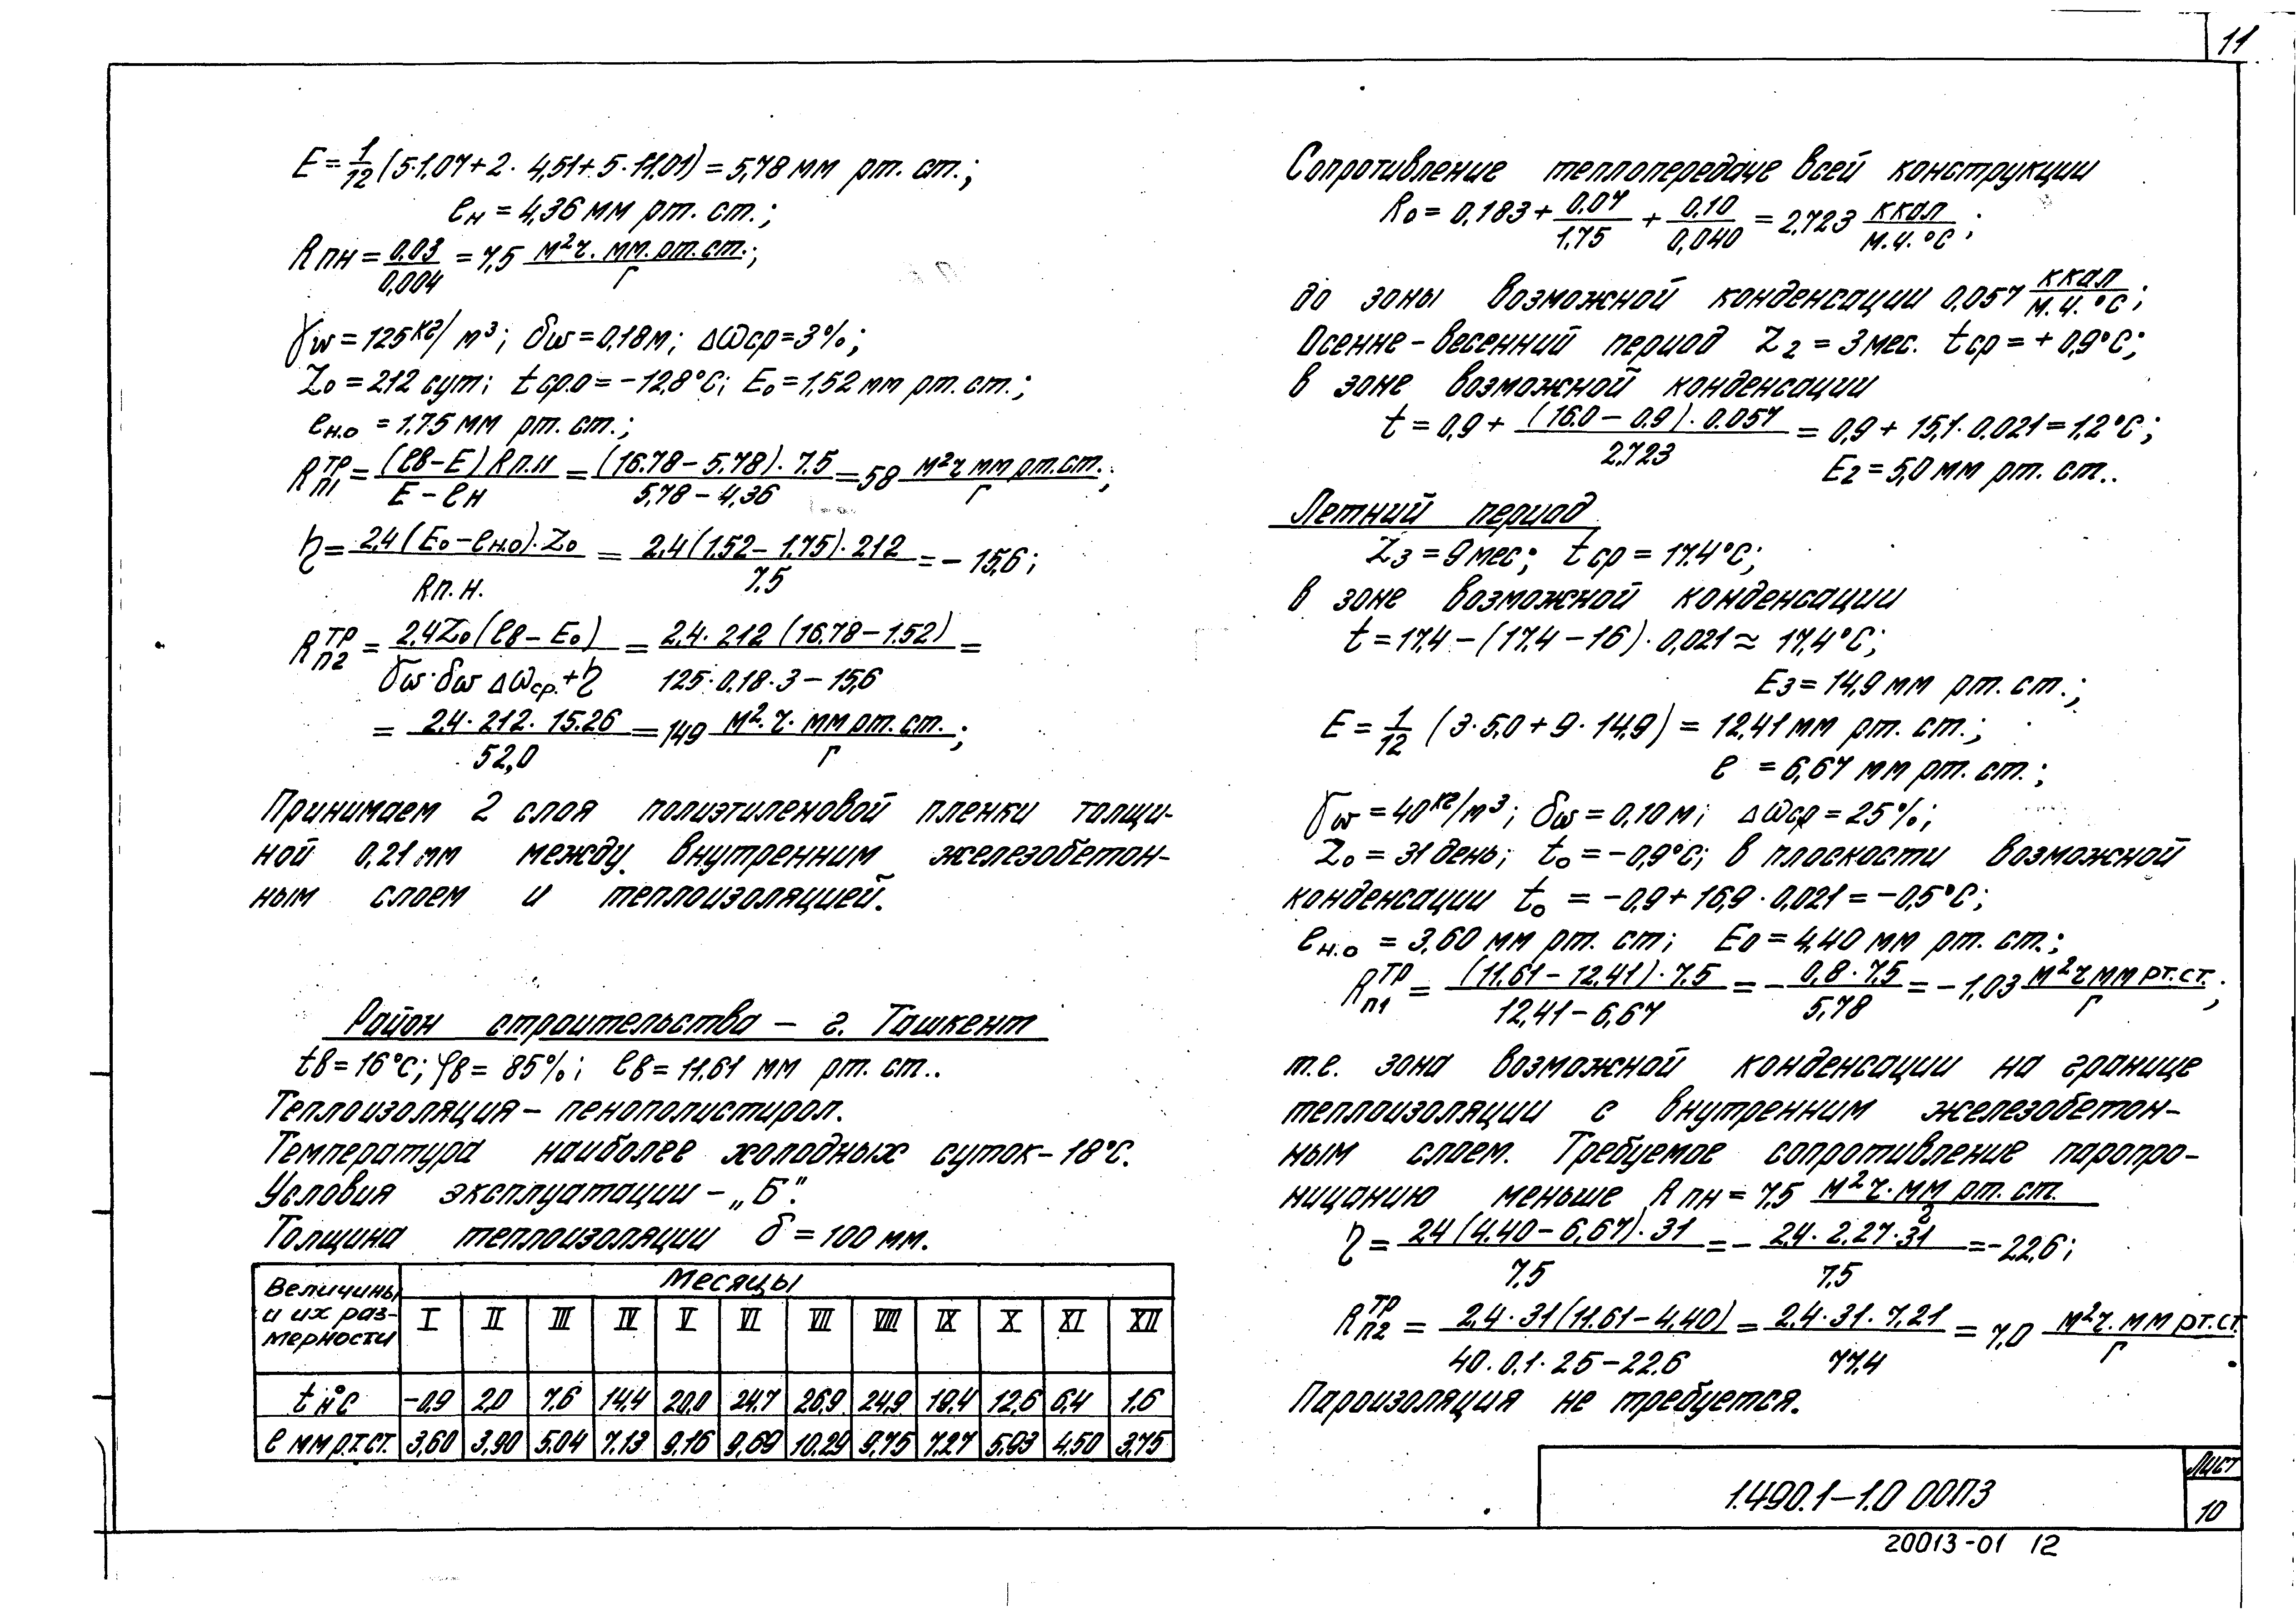 11
E = 1/12 (5·1,07 + 2·4,51 + 5·11,01) = 5,78 мм рт. ст.;
eн = 4,36 мм рт. ст.;
Rпн = 0,03/0,004 = 7,5 м²ч. мм. рт. ст./г;
γw = 125 кг/м³; δw = 0,18 м; Δωср = 3%;
Z₀ = 212 сут; tср.о = -12,8°С; E₀ = 1,52 мм рт. ст.;
eн.о = 1.75 мм рт. ст.;
Rп1ᵀᴾ = (eв - E) Rп.н / (E - eн) = (16.78 - 5.78)·7.5 / (5.78 - 4,36) = 58 м²ч мм рт. ст./г;
η = 2,4 (E₀ - eн.о)·Z₀ / Rп.н. = 2,4 (1.52 - 1.75)·212 / 7.5 = -15,6;
Rп2ᵀᴾ = 2,4Z₀ (eв - E₀) / (γw·δw Δωср. + η) = 2,4·212 (16.78 - 1.52) / (125·0,18·3 - 15,6) =
= 2,4·212·15.26 / 52,0 = 149 м²·ч·мм рт. ст./г;
Принимаем 2 слоя полиэтиленовой пленки толщи-
ной 0,21 мм между внутренним железобетон-
ным слоем и теплоизоляцией.
Район строительства - г. Ташкент
tв = 16°С; φв = 85%; eв = 11.61 мм рт. ст..
Теплоизоляция - пенополистирол.
Температура наиболее холодных суток - 18°С.
Условия эксплуатации - „Б".
Толщина теплоизоляции δ = 100 мм.
Величины и их раз-мерности Месяцы
I II III IV V VI VII VIII IX X XI XII
tн°С -0,9 2,0 7.6 14,4 20,0 24,7 26,9 24,9 19,4 12,6 6,4 1.6
e мм рт. ст. 3,60 3,90 5,04 7,13 9,16 9,69 10,29 9,75 7,27 5,93 4,50 3,75
Сопротивление теплопередаче всей конструкции
R₀ = 0,183 + 0,07/1,75 + 0,10/0,040 = 2,723 ккал/м.ч.°С;
до зоны возможной конденсации 0,057 ккал/м.ч.°С;
Осенне - весенний период Z₂ = 3 мес. tср = + 0,9°С;
в зоне возможной конденсации
t = 0,9 + (16,0 - 0,9)·0,057 / 2,723 = 0,9 + 15,1·0,021 = 1,2°С;
E₂ = 5,0 мм рт. ст..
Летний период
Z₃ = 9 мес; tср = 17.4°С;
в зоне возможной конденсации
t = 17,4 - (17,4 - 16)·0,021 ≈ 17,4°С;
E₃ = 14,9 мм рт. ст.;
E = 1/12 (3·5,0 + 9·14,9) = 12,41 мм рт. ст.;
e = 6,67 мм рт. ст.;
γw = 40 кг/м³; δw = 0,10 м; Δωср = 25%;
Z₀ = 31 день; t₀ = -0,9°С; в плоскости возможной
конденсации t₀ = -0,9 + 16,9·0,021 = -0,5°С;
eн.о = 3,60 мм рт. ст; E₀ = 4,40 мм рт. ст.;
Rп1ᵀᴾ = (11,61 - 12,41)·7,5 / (12,41 - 6,67) = - 0,8·7,5 / 5,78 = -1,03 м²ч мм рт. ст./г;
т.е. зона возможной конденсации на границе
теплоизоляции с внутренним железобетон-
ным слоем. Требуемое сопротивление паропро-
ницанию меньше Rпн = 7,5 м²ч·мм рт. ст./г
η = 2,4 (4,40 - 6,67)·31 / 7,5 = - 2,4·2,27·31 / 7,5 = -22,6;
Rп2ᵀᴾ = 2,4·31 (11,61 - 4,40) / (40·0,1·25 - 22,6) = 2,4·31·7,21 / 77,4 = 7,0 м²ч. мм рт. ст./г.
Пароизоляция не требуется.
1.490.1-1.0 00ПЗ
Лист
10
20013-01 12